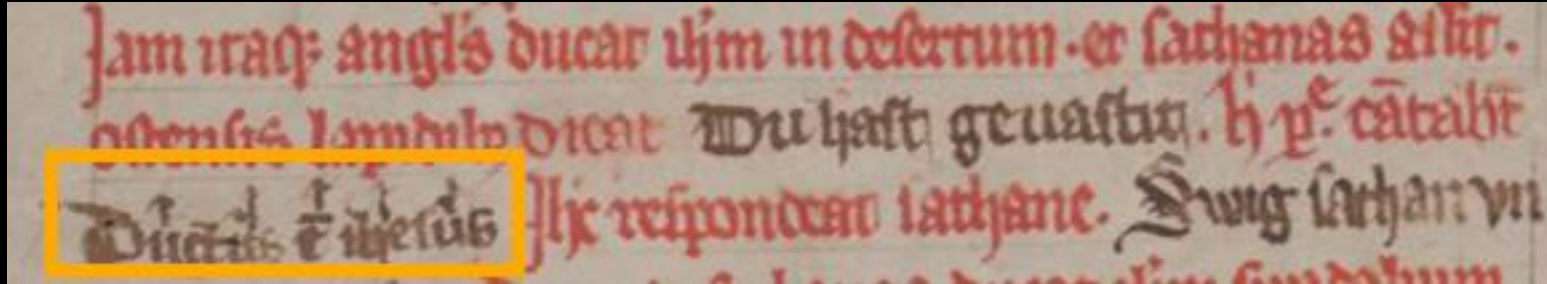 Jam itaq; angl's ducat ihm in desertum. et sathanas assit.
ostensis lapidib; dicat Du hast geuastin. h pͤ. cātabūt
Ductus ē ihesus Ihc respondeat sathane. Swig sathan vn